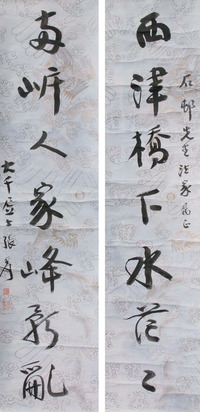 西津橋下水茫々
石郵先生法家屬正
两岸人家峰影亂
大千居士張爰